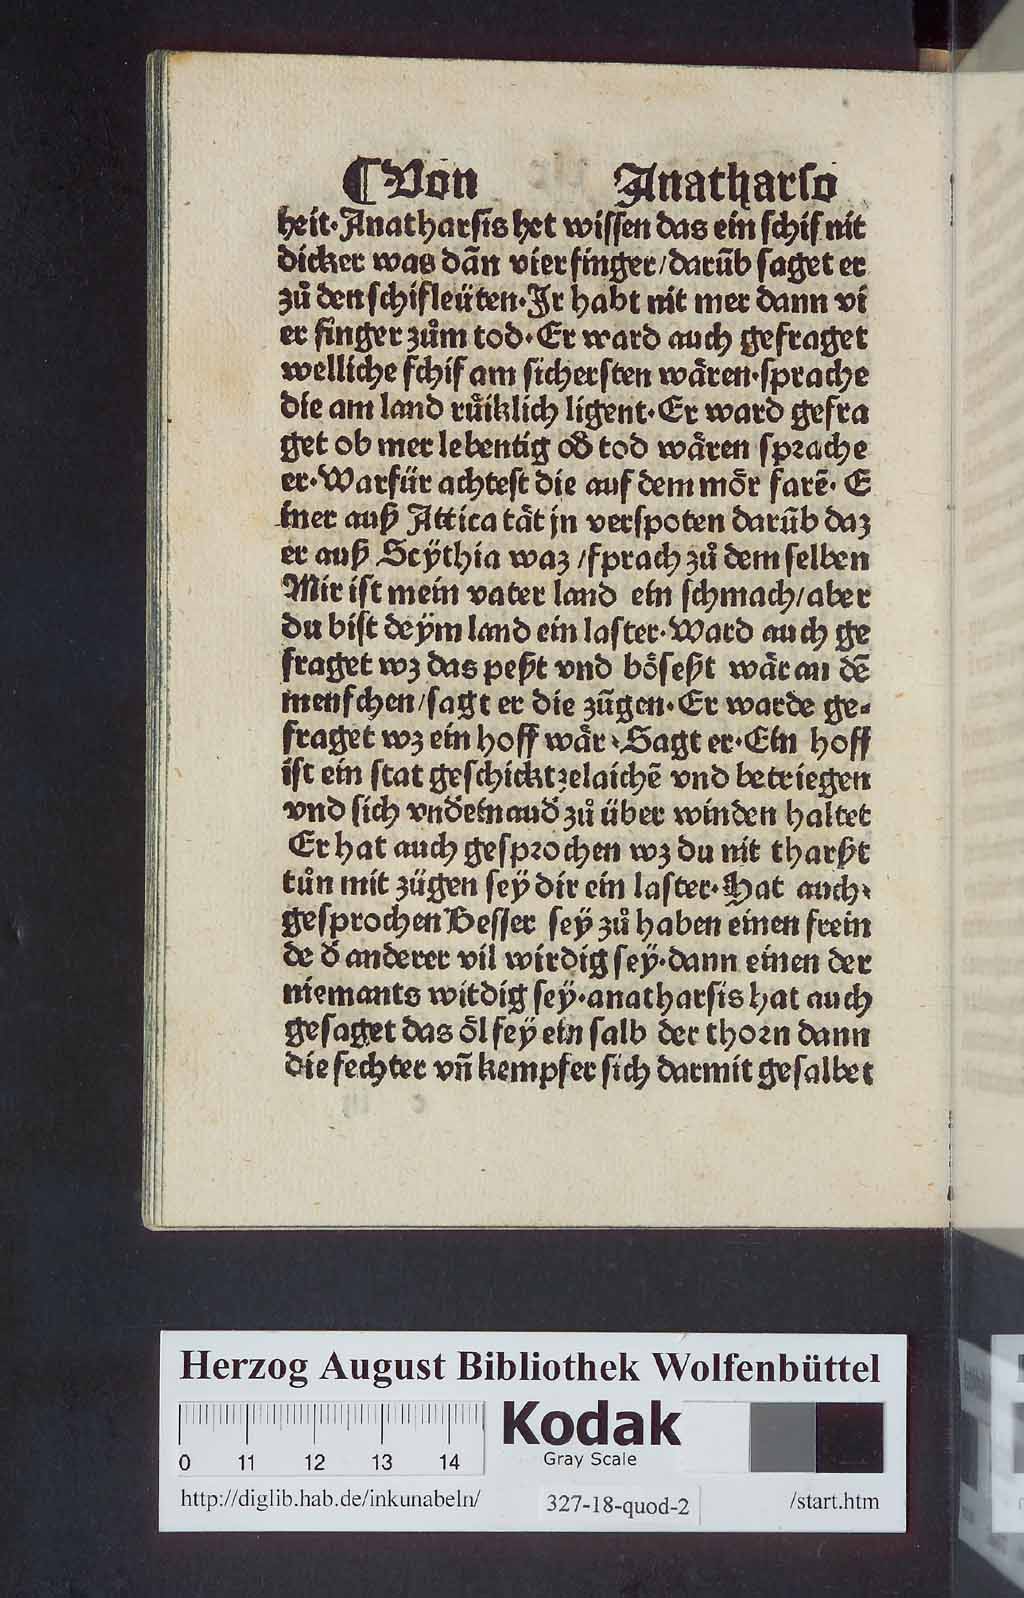 ¶ Von Anatharso
heit·Anatharsis het wissen das ein schif nit
dicker was dañ vier finger/darūb saget er
zů den schifleüten·Jr habt nit mer dann vi
er finger zům tod·Er ward auch gefraget
welliche schif am sichersten wären·sprache
die am land růiklich ligent·Er ward gefra
get ob mer lebentig od̕ tod wären sprache
er·Warfür achtest die auf dem mör farē· E
iner auß Attica tät jn verspoten darūb daz
er auß Scÿthia waz /sprach zů dem selben
Mir ist mein vater land ein schmach/aber
du bist deÿm land ein laster·Ward auch ge
fraget wz das peßt vnd bösest wär an dē
menschen/sagt er die zūgen·Er warde ge-
fraget wz ein hoff wär·Sagt er·Ein hoff
ist ein stat geschickt zelaichē vnd betriegen
vnd sich vnd̕einand̕ zů über winden haltet
Er hat auch gesprochen wz du nit tharßt
tůn mit zügen seÿ dir ein laster·Hat auch·
gesprochen Besser seÿ zů haben einen frein
de d̕ anderer vil wirdig seÿ·dann einen der
niemants witdig seÿ·anatharsis hat auch
gesaget das öl seÿ ein salb der thorn dann
die fechter vñ kempfer sich darmit gesalbet
Herzog August Bibliothek Wolfenbüttel
0 11 12 13 14
Kodak
Gray Scale
http://diglib.hab.de/inkunabeln/ 327-18-quod-2 /start.htm